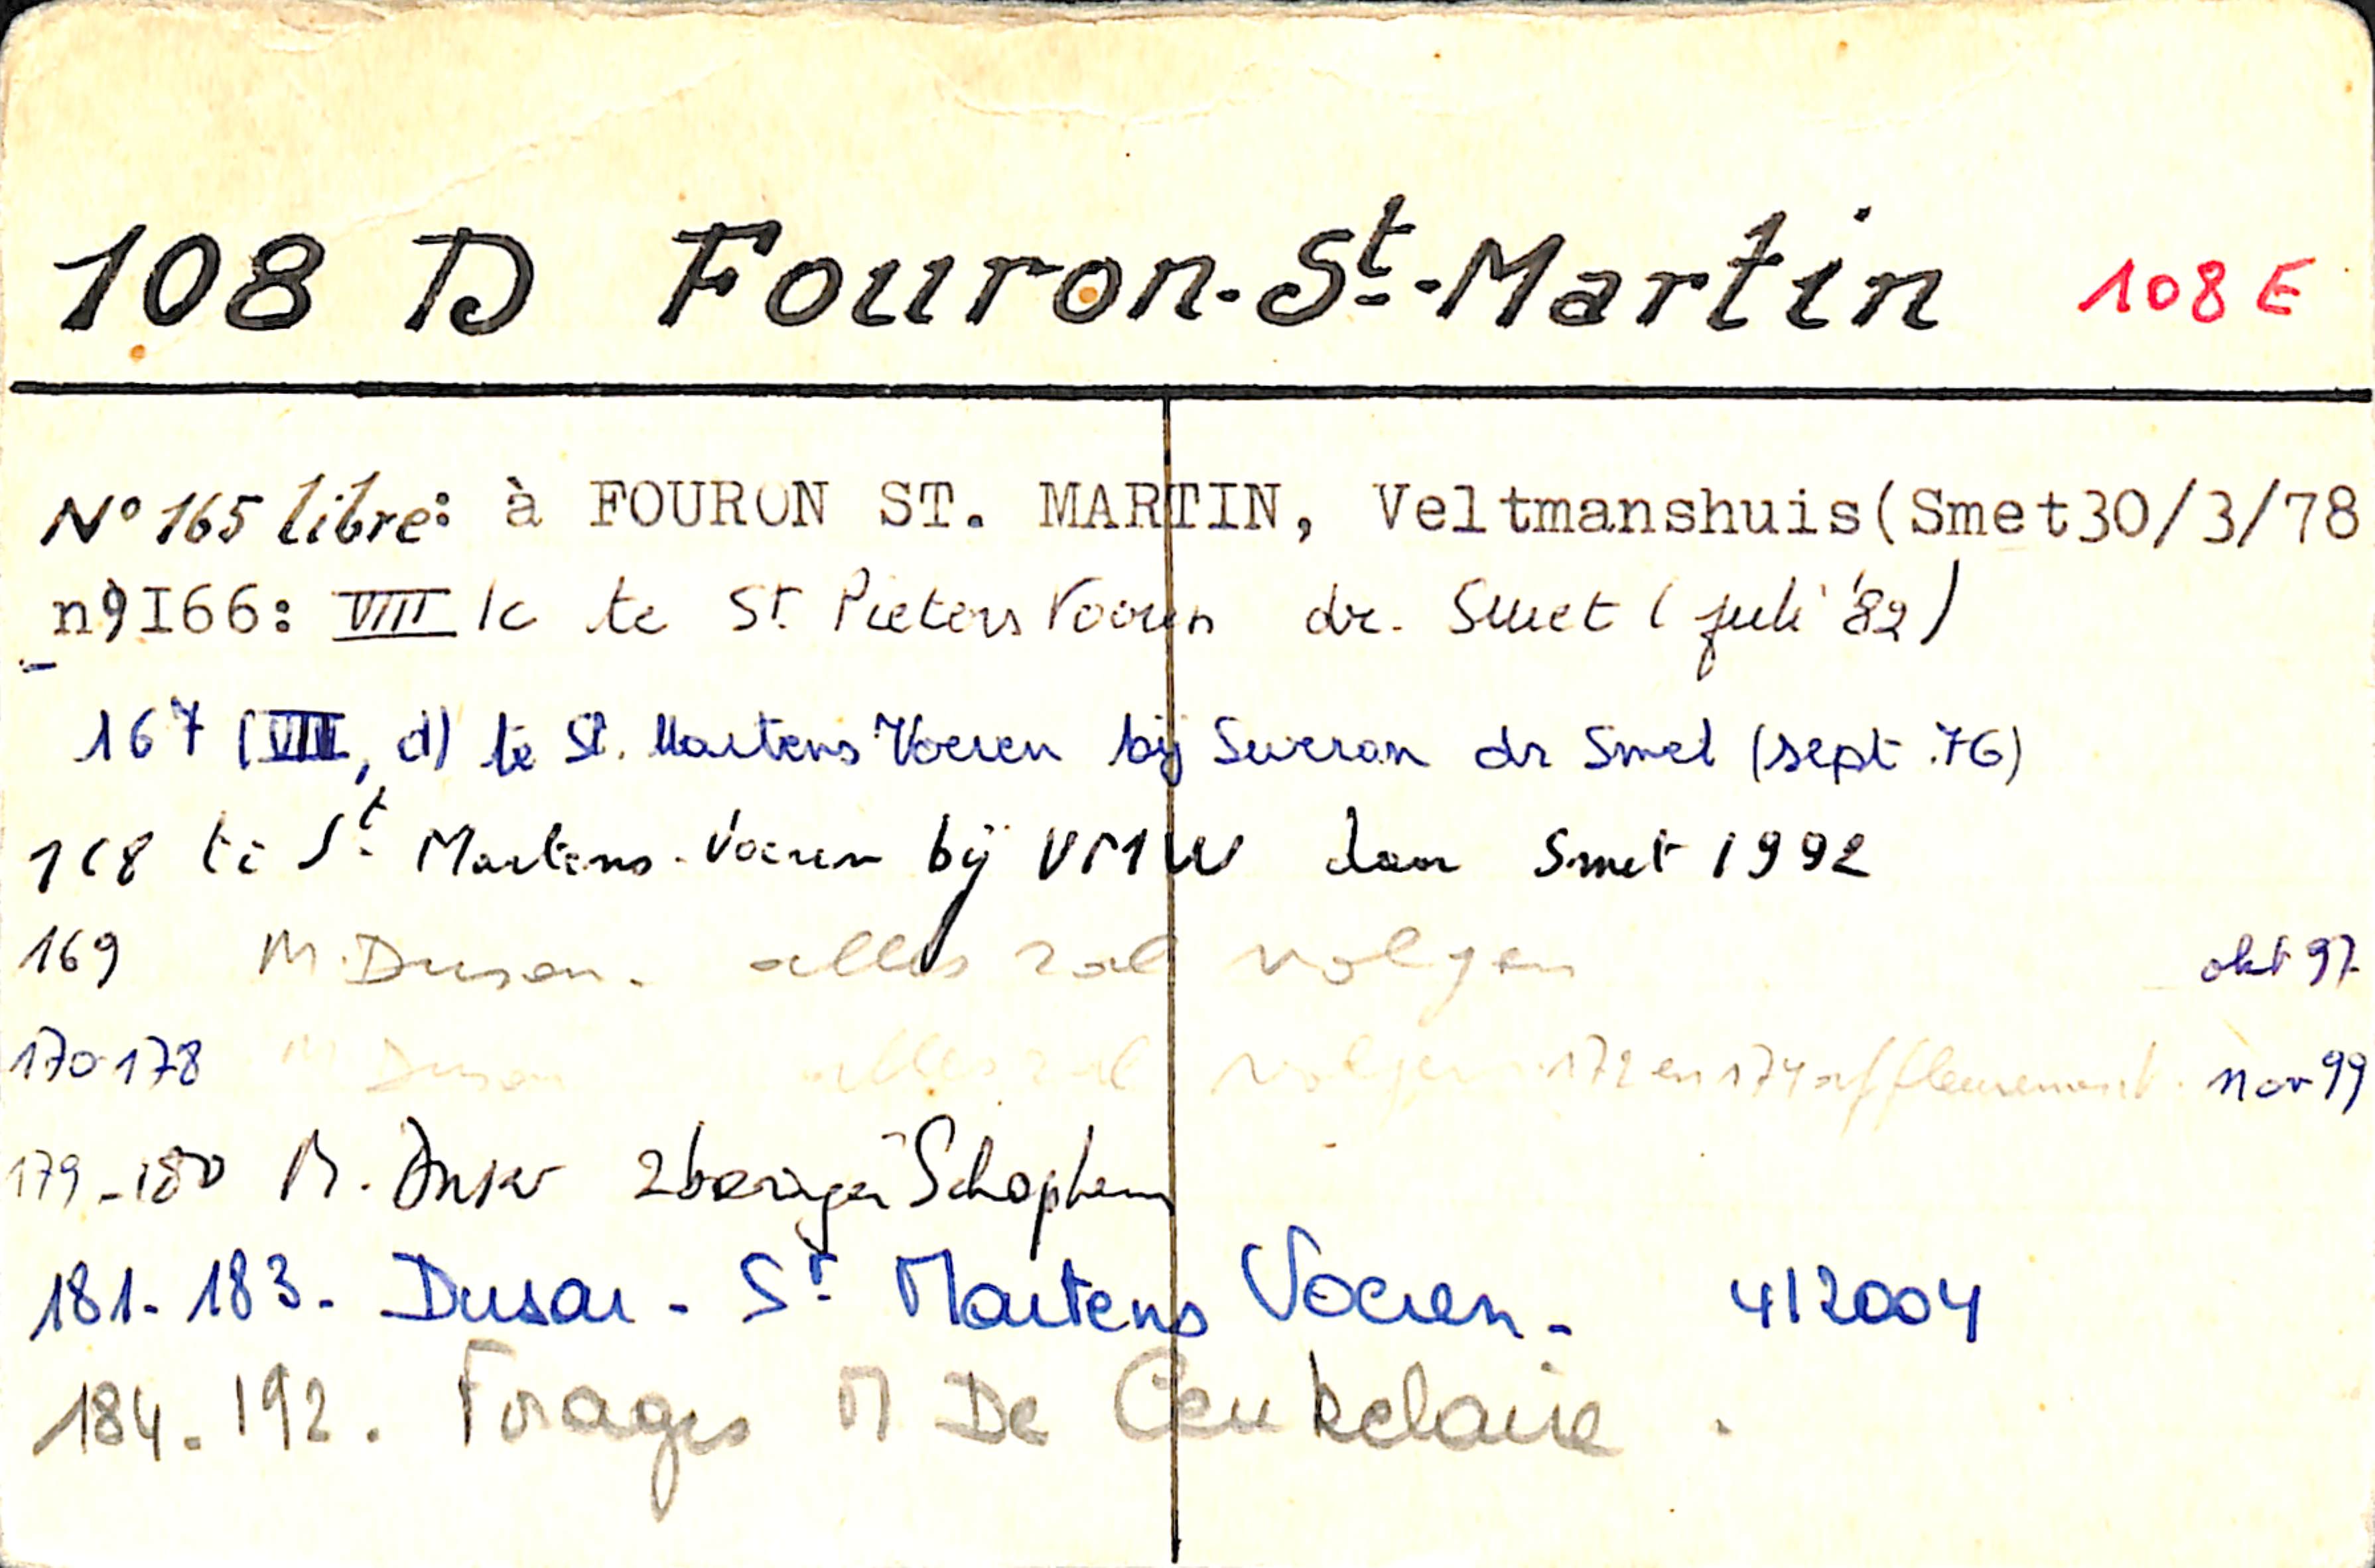 108 D Fouron-St-Martin 108 E
N° 165 libre: à FOURON ST. MARTIN, Veltmanshuis(Smet30/3/78
n°I66: VIII /c te St Pieters Voeren dr. Smet (juli '82)
167 (VIII, d) te St. Martens Voeren bij Sweron dr Smet (sept. 76)
168 te St Martens-Voeren bij VMW door Smet 1992
169 M. Dusar. alles zal volgen okt 97
170-178 M Dusar alles zal volgen 172 en 174 affleurement. nov 99
179-180 M. Dusar 2 boringen Schophem
181-183- Dusar - St Martens Voeren - 4/2004
184-192. Forages M De Ceukelaire.